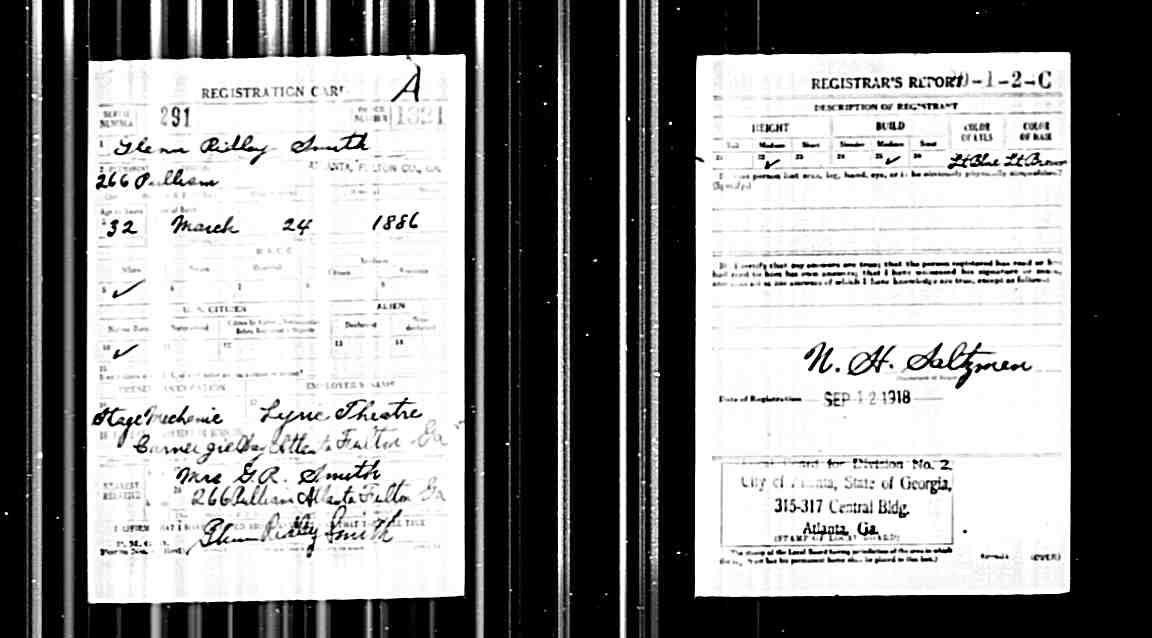 REGISTRATION CARD
A
SERIAL NUMBER 291
ORDER NUMBER 1321
1 Glenn Ridley Smith
2 ATLANTA, FULTON CO., GA.
266 Pulliam
Age in Years
3 32 March 24 1886
RACE
White Negro Oriental
5 ✓ 6 7 8 9
U. S. CITIZEN ALIEN
Native Born Naturalized Declarant
10 ✓ 11 12 13 14
15
PRESENT OCCUPATION EMPLOYER'S NAME
Stage Mechanic Lyric Theatre
Carnegie Way Atlanta Fulton Ga
NEAREST RELATIVE
Mrs G.R. Smith
20 266 Pulliam Atlanta Fulton Ga
I AFFIRM THAT I HAVE
P. M. G. O.
Glenn Ridley Smith
REGISTRAR'S REPORT -1-2-C
DESCRIPTION OF REGISTRANT
HEIGHT BUILD COLOR OF EYES COLOR OF HAIR
Tall Medium Short Slender Medium Stout
21 22 ✓ 23 24 25 ✓ 26 Lt Blue Lt Brown
person lost arm, leg, hand, eye, or is he obviously physically disqualified?
(Specify)
30. I certify that my answers are true; that the person registered has read or has
had read to him his own answers; that I have witnessed his signature or mark,
and that all of his answers of which I have knowledge are true, except as follows:
N. H. Saltzmen
Date of Registration SEP 12 1918
Local Board for Division No. 2,
City of Atlanta, State of Georgia,
315-317 Central Bldg.
Atlanta, Ga.
(STAMP OF LOCAL BOARD)
(The stamp of the Local Board having jurisdiction of the area in which
the registrant has his permanent home shall be placed in this box.)
(OVER)